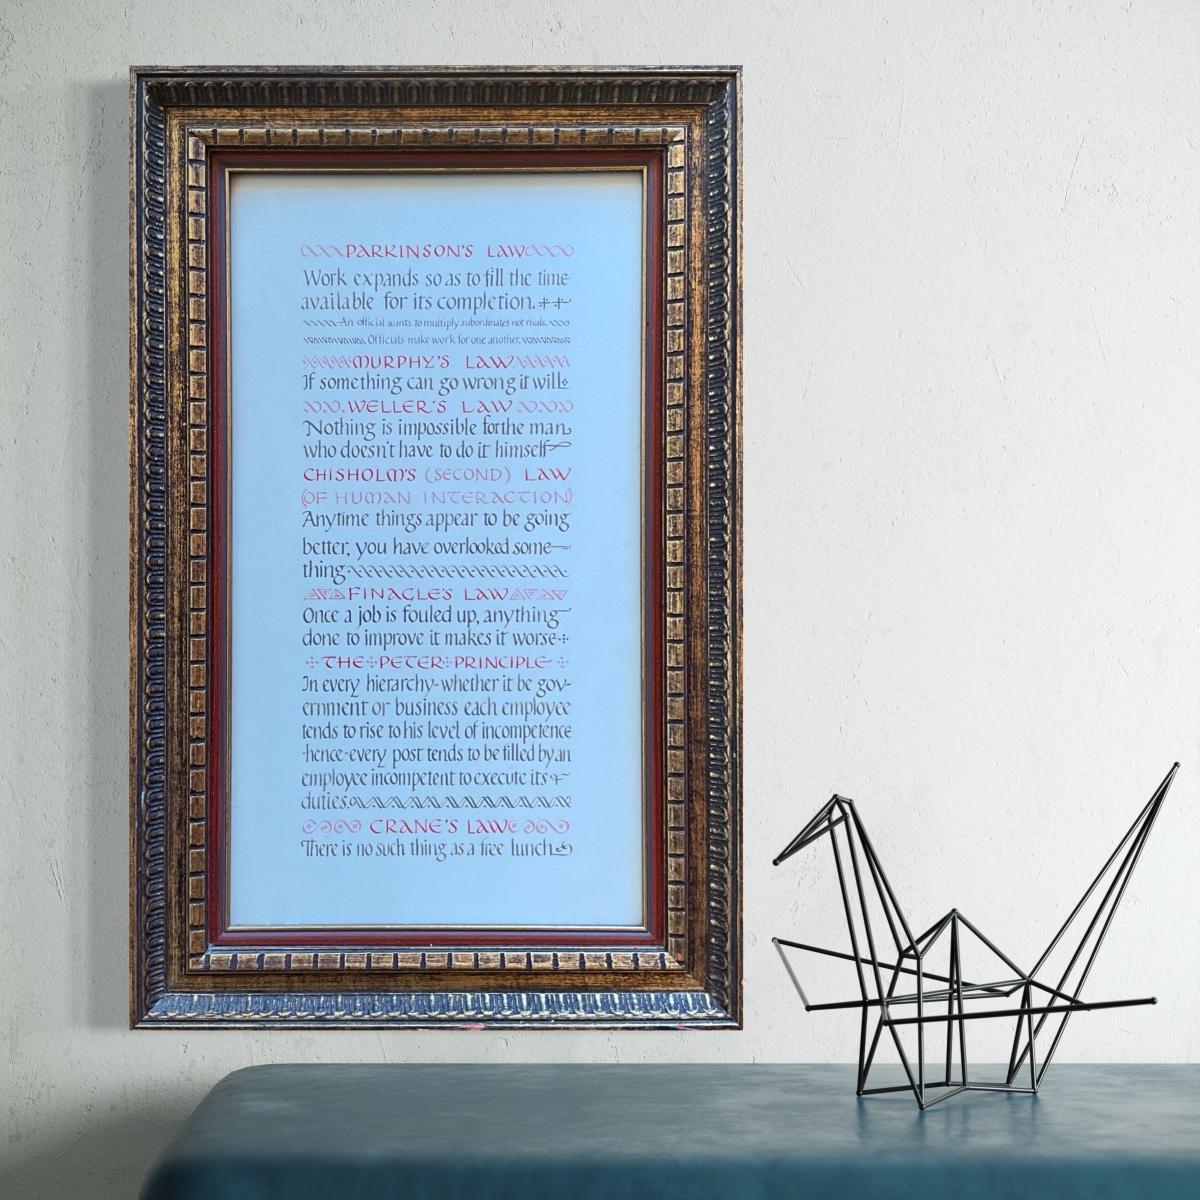 PARKINSON'S LAW
Work expands so as to fill the time
available for its completion.
An official wants to multiply subordinates not rivals.
Officials make work for one another.
MURPHY'S LAW
If something can go wrong it will.
WELLER'S LAW
Nothing is impossible for the man
who doesn't have to do it himself
CHISHOLM'S (SECOND) LAW
(OF HUMAN INTERACTION)
Anytime things appear to be going
better, you have overlooked some-
thing
FINAGLE'S LAW
Once a job is fouled up, anything
done to improve it makes it worse
THE PETER PRINCIPLE
In every hierarchy-whether it be gov-
ernment or business each employee
tends to rise to his level of incompetence
-hence-every post tends to be filled by an
employee incompetent to execute its
duties.
CRANE'S LAW
There is no such thing as a free lunch